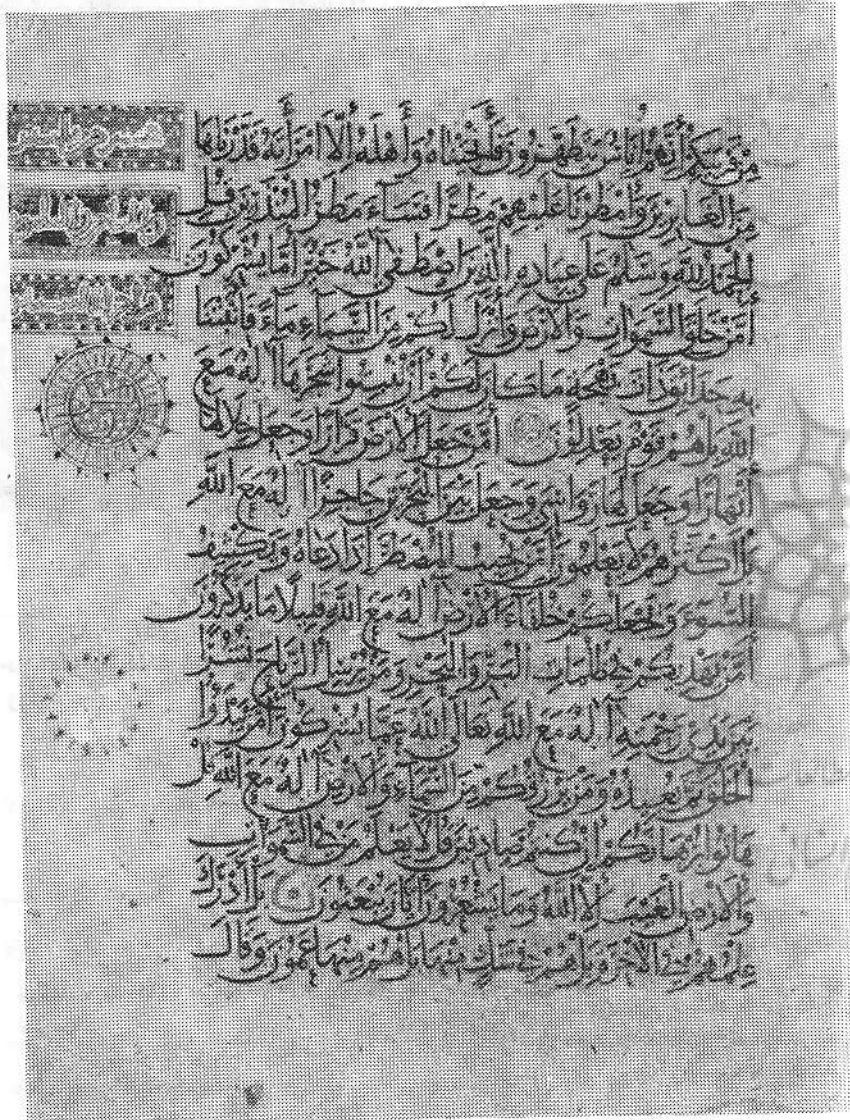 مِنْ قَرْيَتِكُمْ إِنَّهُمْ أُنَاسٌ يَتَطَهَّرُونَ فَأَنْجَيْنَاهُ وَأَهْلَهُ إِلَّا امْرَأَتَهُ قَدَّرْنَاهَا
مِنَ الْغَابِرِينَ وَأَمْطَرْنَا عَلَيْهِمْ مَطَرًا فَسَاءَ مَطَرُ الْمُنْذَرِينَ قُلِ
الْحَمْدُ لِلَّهِ وَسَلَامٌ عَلَى عِبَادِهِ الَّذِينَ اصْطَفَى آللَّهُ خَيْرٌ أَمَّا يُشْرِكُونَ
أَمَّنْ خَلَقَ السَّمَوَاتِ وَالْأَرْضَ وَأَنْزَلَ لَكُمْ مِنَ السَّمَاءِ مَاءً فَأَنْبَتْنَا
بِهِ حَدَائِقَ ذَاتَ بَهْجَةٍ مَا كَانَ لَكُمْ أَنْ تُنْبِتُوا شَجَرَهَا أَإِلَهٌ مَعَ
اللَّهِ بَلْ هُمْ قَوْمٌ يَعْدِلُونَ أَمَّنْ جَعَلَ الْأَرْضَ قَرَارًا وَجَعَلَ خِلَالَهَا
أَنْهَارًا وَجَعَلَ لَهَا رَوَاسِيَ وَجَعَلَ بَيْنَ الْبَحْرَيْنِ حَاجِزًا أَإِلَهٌ مَعَ اللَّهِ
بَلْ أَكْثَرُهُمْ لَا يَعْلَمُونَ أَمَّنْ يُجِيبُ الْمُضْطَرَّ إِذَا دَعَاهُ وَيَكْشِفُ
السُّوءَ وَيَجْعَلُكُمْ خُلَفَاءَ الْأَرْضِ أَإِلَهٌ مَعَ اللَّهِ قَلِيلًا مَا يَذَّكَّرُونَ
أَمَّنْ يَهْدِيكُمْ فِي ظُلُمَاتِ الْبَرِّ وَالْبَحْرِ وَمَنْ يُرْسِلُ الرِّيَاحَ نَشْرًا
بَيْنَ يَدَيْ رَحْمَتِهِ أَإِلَهٌ مَعَ اللَّهِ تَعَالَى اللَّهُ عَمَّا يُشْرِكُونَ أَمَّنْ يَبْدَؤُا
الْخَلْقَ ثُمَّ يُعِيدُهُ وَمَنْ يَرْزُقُكُمْ مِنَ السَّمَاءِ وَالْأَرْضِ أَإِلَهٌ مَعَ اللَّهِ قُلْ
هَاتُوا بُرْهَانَكُمْ إِنْ كُنْتُمْ صَادِقِينَ قُلْ لَا يَعْلَمُ مَنْ فِي السَّمَوَاتِ
وَالْأَرْضِ الْغَيْبَ إِلَّا اللَّهُ وَمَا يَشْعُرُونَ أَيَّانَ يُبْعَثُونَ بَلِ ادَّرَكَ
عِلْمُهُمْ فِي الْآخِرَةِ بَلْ هُمْ فِي شَكٍّ مِنْهَا بَلْ هُمْ مِنْهَا عَمُونَ وَقَالَ